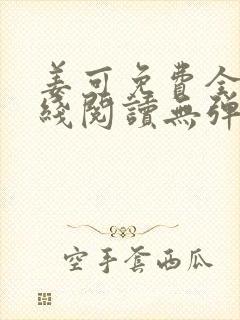 姜可免費全
綫閱讀無彈
空手套西瓜